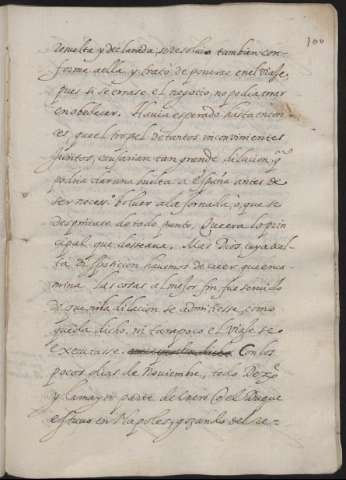 100
resuelta y declarada, se resoluio tambien con-
forme a ella y trató de ponerse en el viaje,
pues si se errase el negocio no podia errar
en obedecer. Hauia esperado hasta enton-
ces que el tropel de tantos inconuinientes
juntos, causarian tan grande dilacion, q̃
podria dar una buelta a España antes de
ser neces.º boluer a la jornada, o que se
desprziuase de todo punto, que era lo prin-
cipal que desseaua. Mas Dios, cuya al-
ta disposicion hauemos de creer que enca-
mina las cosas al mejor fin fue seruido
de que ni la dilacion se admitiesse, como
queda dicho, ni tampoco el viaje se
executasse. Con los
pocos dias de Nouiembre, todo Dez.e
y la mayor parte de Enero el Duque
estuuo en Napoles, gozando del re-